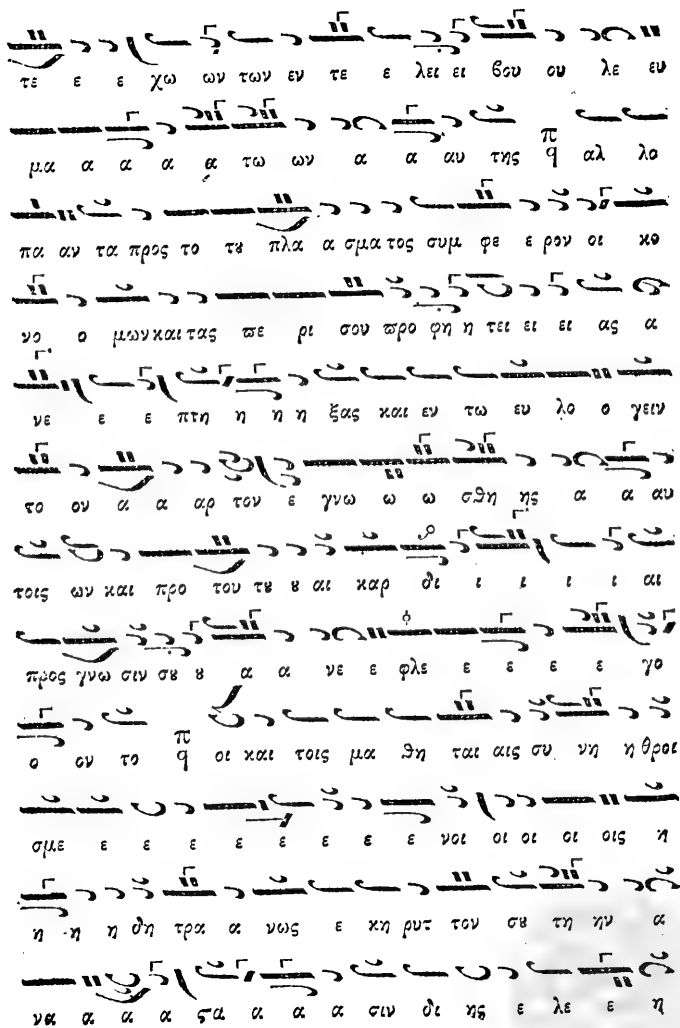 τε ε ε χω ων των εν τε ε λει ει βου ου λε ευ
μα α α α α τω ων α α αυ της π q αλ λο
πα αν τα προς το τȣ πλα α σματος συμ φε ε ρον οι κο
νο ο μων και τας ϖε ρι σου ϖρο φη η τει ει ει ας α
νε ε ε πτη η η η ξας και εν τω ευ λο ο γειν
το ον α α αρ τον ε γνω ω ω σθη ης α α αυ
τοις ων και προ του τȣ ȣ αι καρ δι ι ι ι ι αι
προς γνω σιν σȣ ȣ α α νε ε φλε ε ε ε ε γο
ο ον το π q οι και τοις μα θη ται αις συ νη η θροι
σμε ε ε ε ε ε ε ε ε νοι οι οι οι οις η
η η η δη τρα α νως ε κη ρυτ τον σȣ τη ην α
να α α α ϛα α α α σιν δι ης ε λε ε η